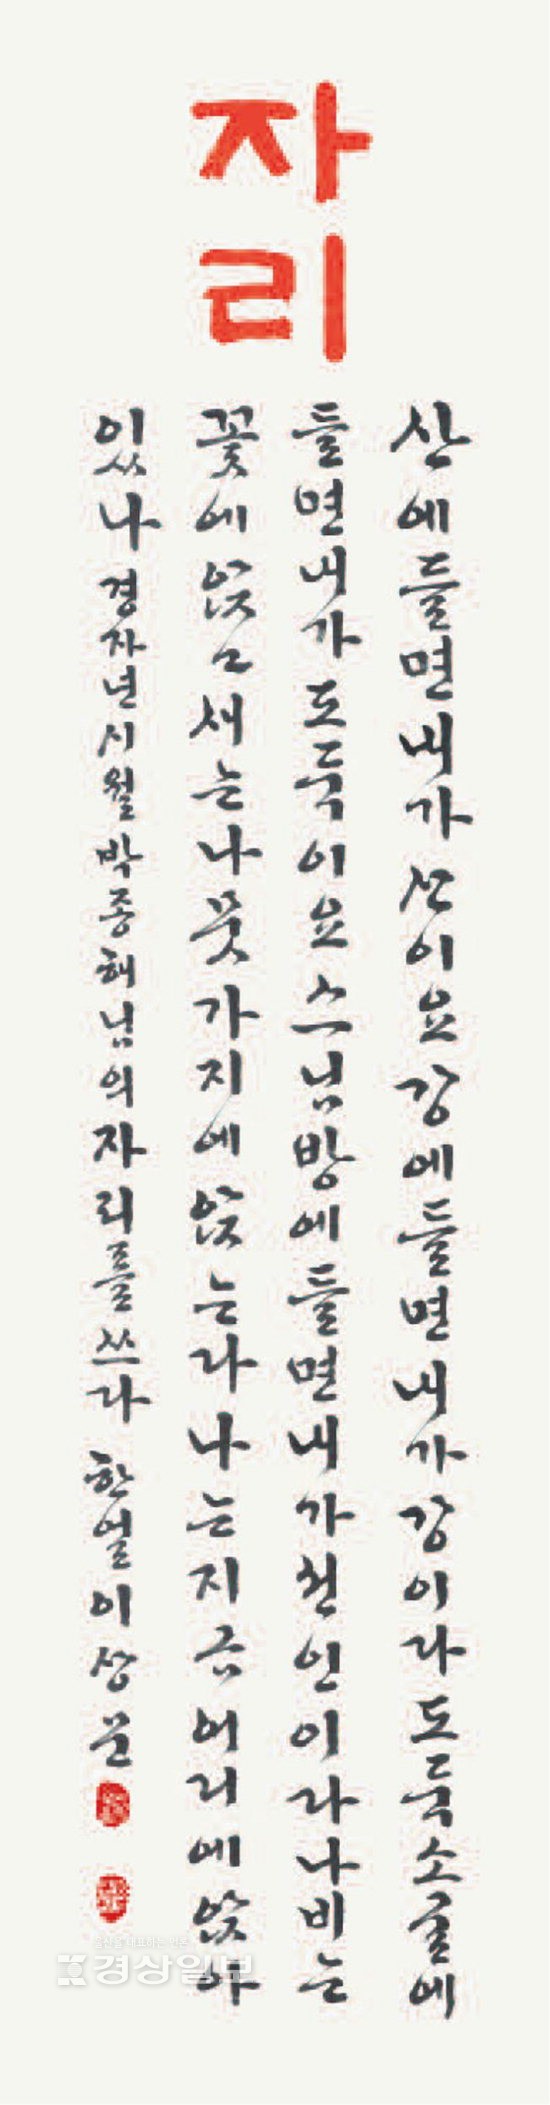 자리
산에들면내가산이요강에들면내가강이라도둑소굴에
들면내가도둑이요스님방에들면내가천인이라나비는
꽃에앉고새는나뭇가지에앉는다나는지금어디에앉아
있나 경자년시월박종해님의자리를쓰다 한얼이상문
경상일보